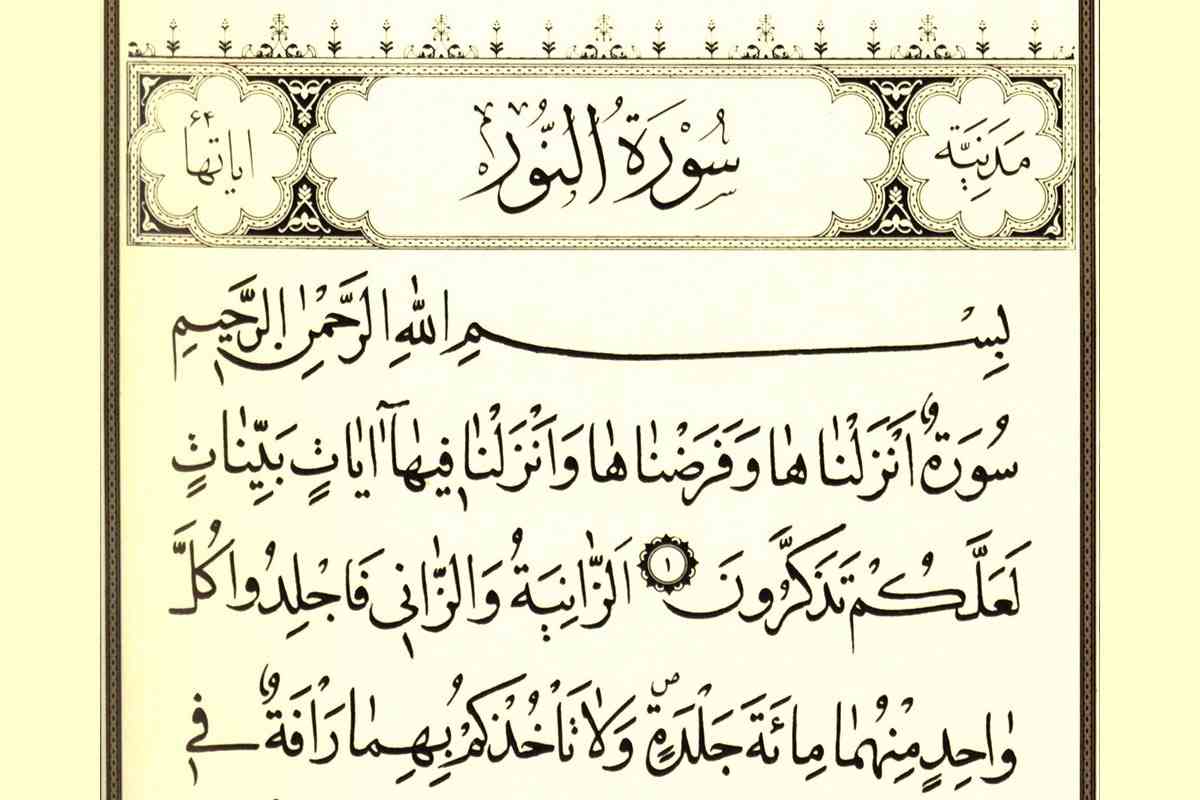 مَدَنِيَّة سُوْرَةُ النُّوْرِ اياتها ٦٤
بِسْمِ اللّٰهِ الرَّحْمٰنِ الرَّحِيمِ
سُورَةٌ اَنْزَلْنٰاهٰا وَفَرَضْنٰاهٰا وَاَنْزَلْنٰا فِيهٰآ اٰيٰاتٍ بَيِّنٰاتٍ
لَعَلَّكُمْ تَذَكَّرُونَ ١ اَلزّٰانِيَةُ وَالزّٰانِي فَاجْلِدُوا كُلَّ
وٰاحِدٍ مِنْهُمٰا مِائَةَ جَلْدَةٍ ص وَلاٰ تَأْخُذْكُمْ بِهِمٰا رَاْفَةٌ فِي